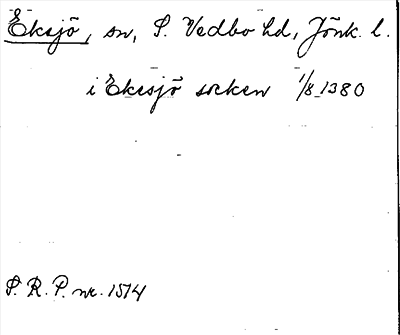 Eksjö, sn, S. Vedbo hd, Jönk. l.
i Ekesjö socken 1/8 1380
S. R. P. nr. 1514